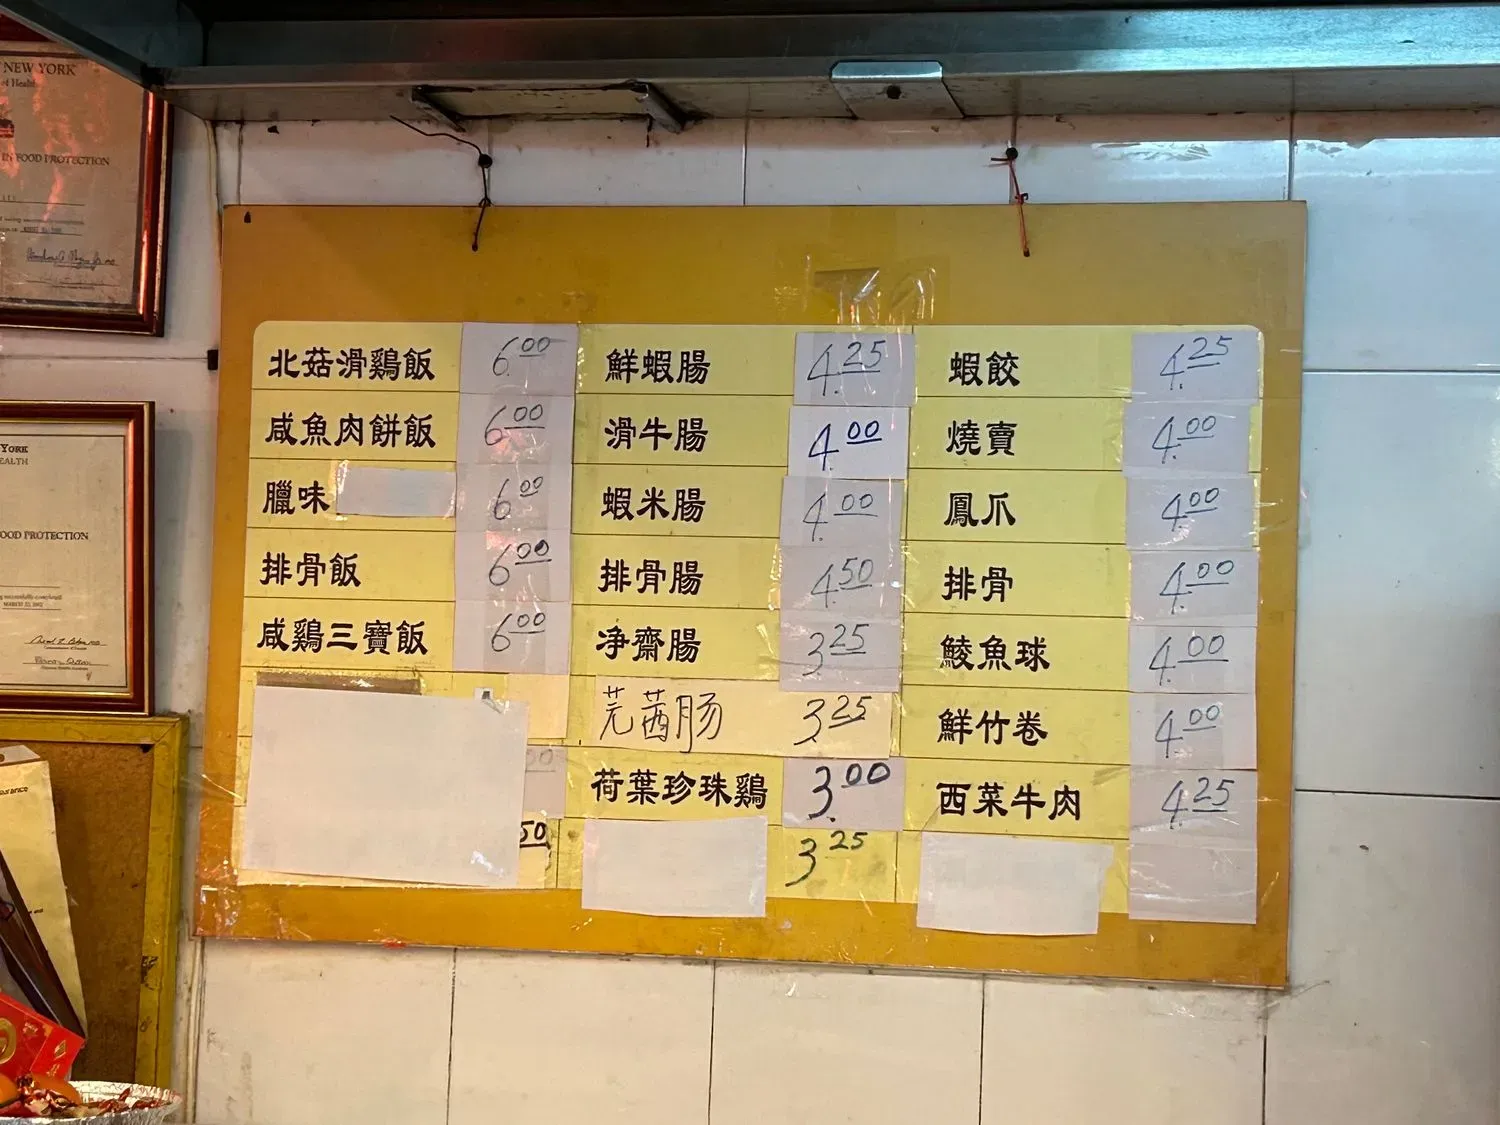 NEW YORK
of Health
IN FOOD PROTECTION
YORK
HEALTH
FOOD PROTECTION
北菇滑鷄飯 6.00
咸魚肉餅飯 6.00
臘味 6.00
排骨飯 6.00
咸鷄三寶飯 6.00
50
鮮蝦腸 4.25
滑牛腸 4.00
蝦米腸 4.00
排骨腸 4.50
净齋腸 3.25
芫茜肠 3.25
荷葉珍珠鷄 3.00
3.25
蝦餃 4.25
燒賣 4.00
鳳爪 4.00
排骨 4.00
鯪魚球 4.00
鮮竹卷 4.00
西菜牛肉 4.25